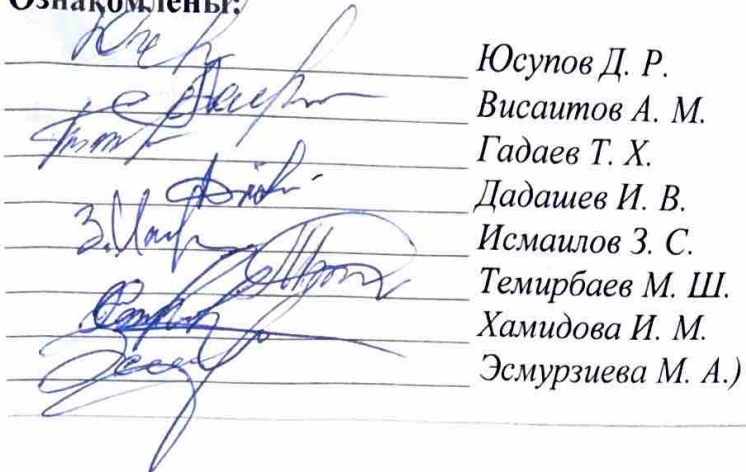 Ознакомлены:
Юсупов Д. Р.
Висаитов А. М.
Гадаев Т. Х.
Дадашев И. В.
Исмаилов З. С.
Темирбаев М. Ш.
Хамидова И. М.
Эсмурзиева М. А.)